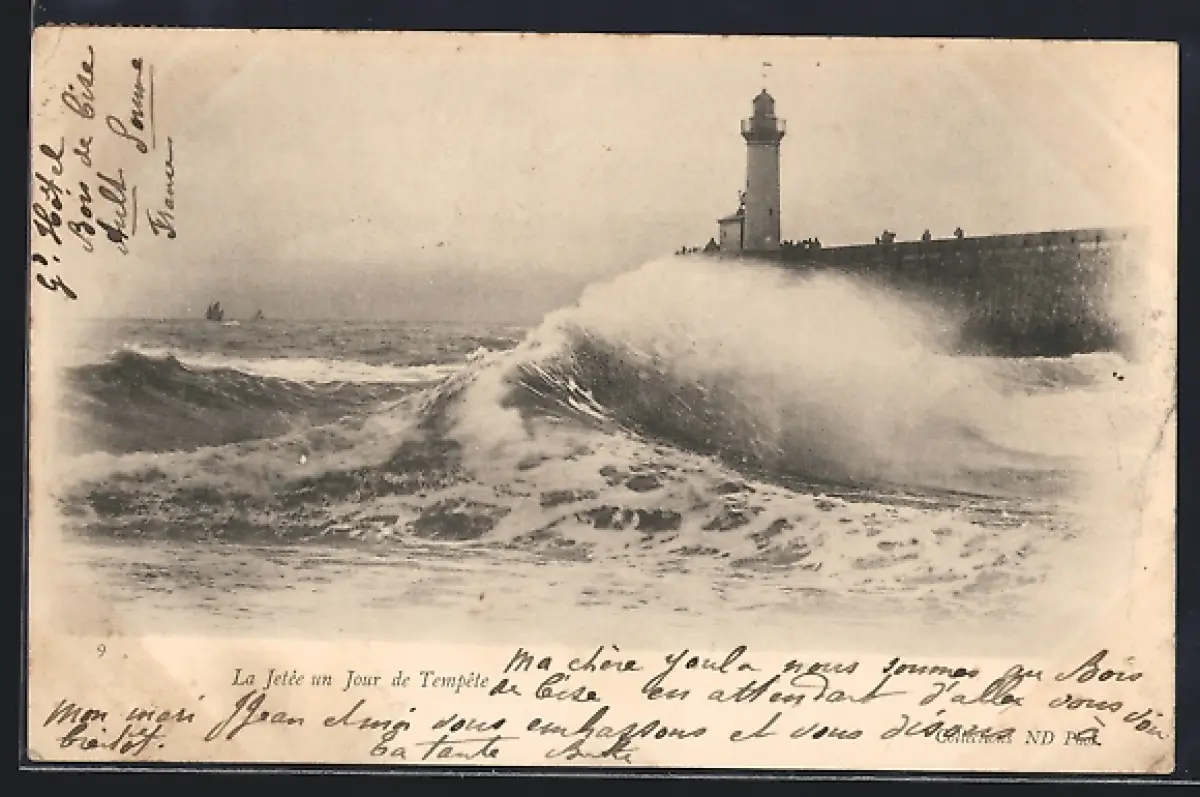 Gd Hôtel
Bois de Cise
Ault Somme
France
9
La Jetée un Jour de Tempête
Ma chère Youla nous sommes au Bois
de Cise en attendant d'aller vous voir
Mon mari Jean et moi vous embrassons et vous disons à
bientôt.
ta tante
Collections ND Phot.